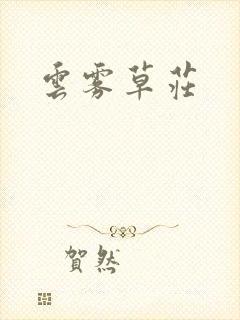 雲雾草莊
賀然